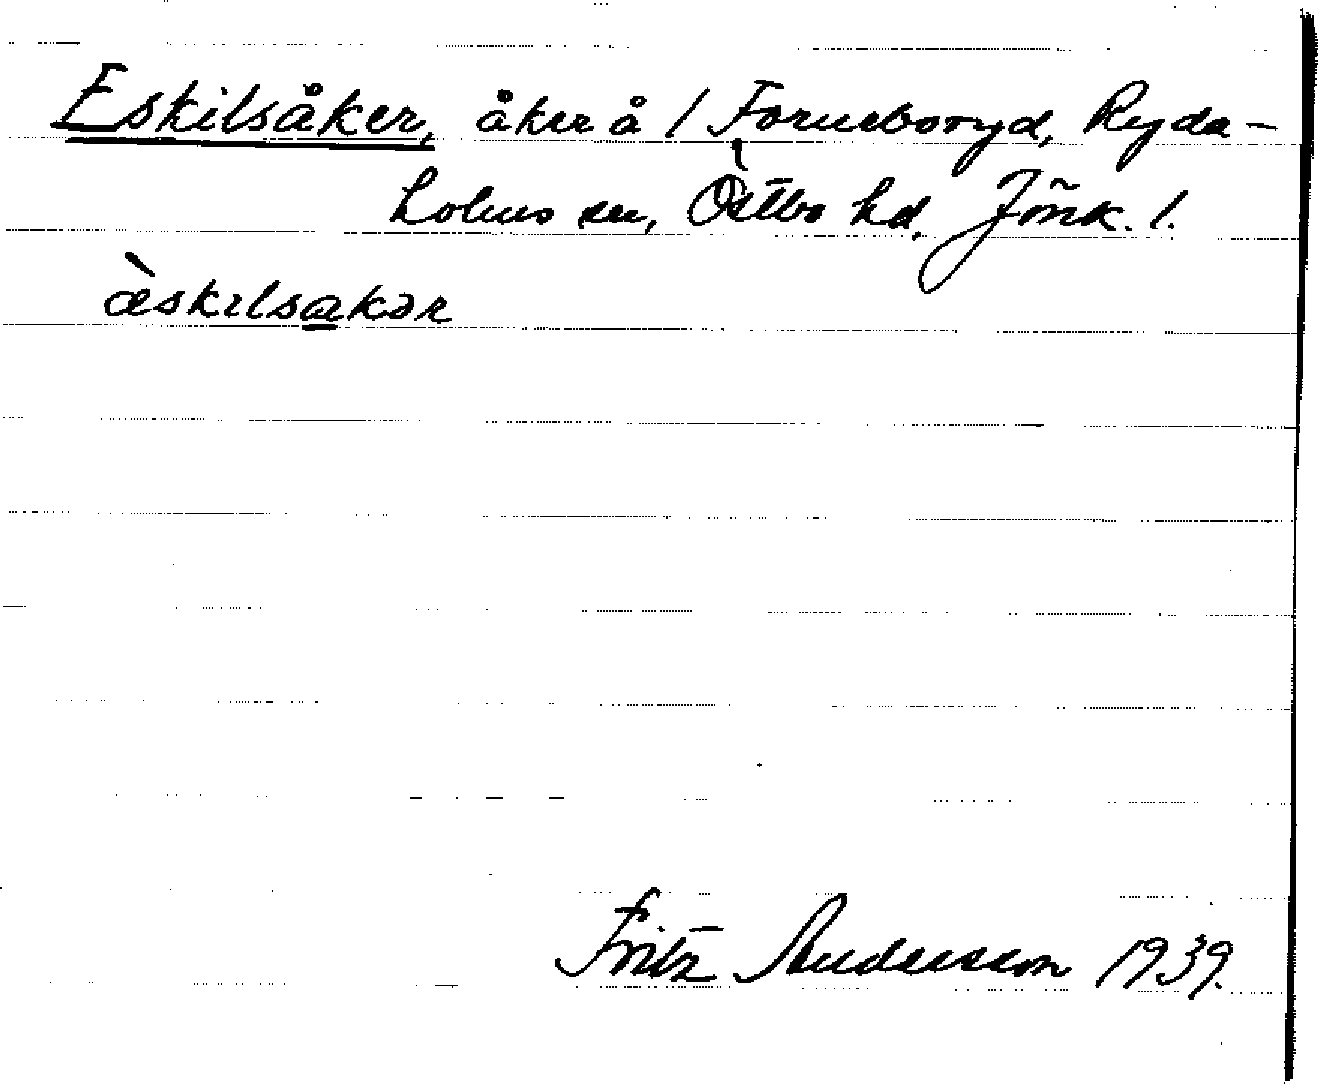 Eskilsåker, åker å / Forneboryd, Ryda-
holms sn, Östbo hd, Jönk. l.
æ̀skɪlsakər
Fritz Andersson 1939.